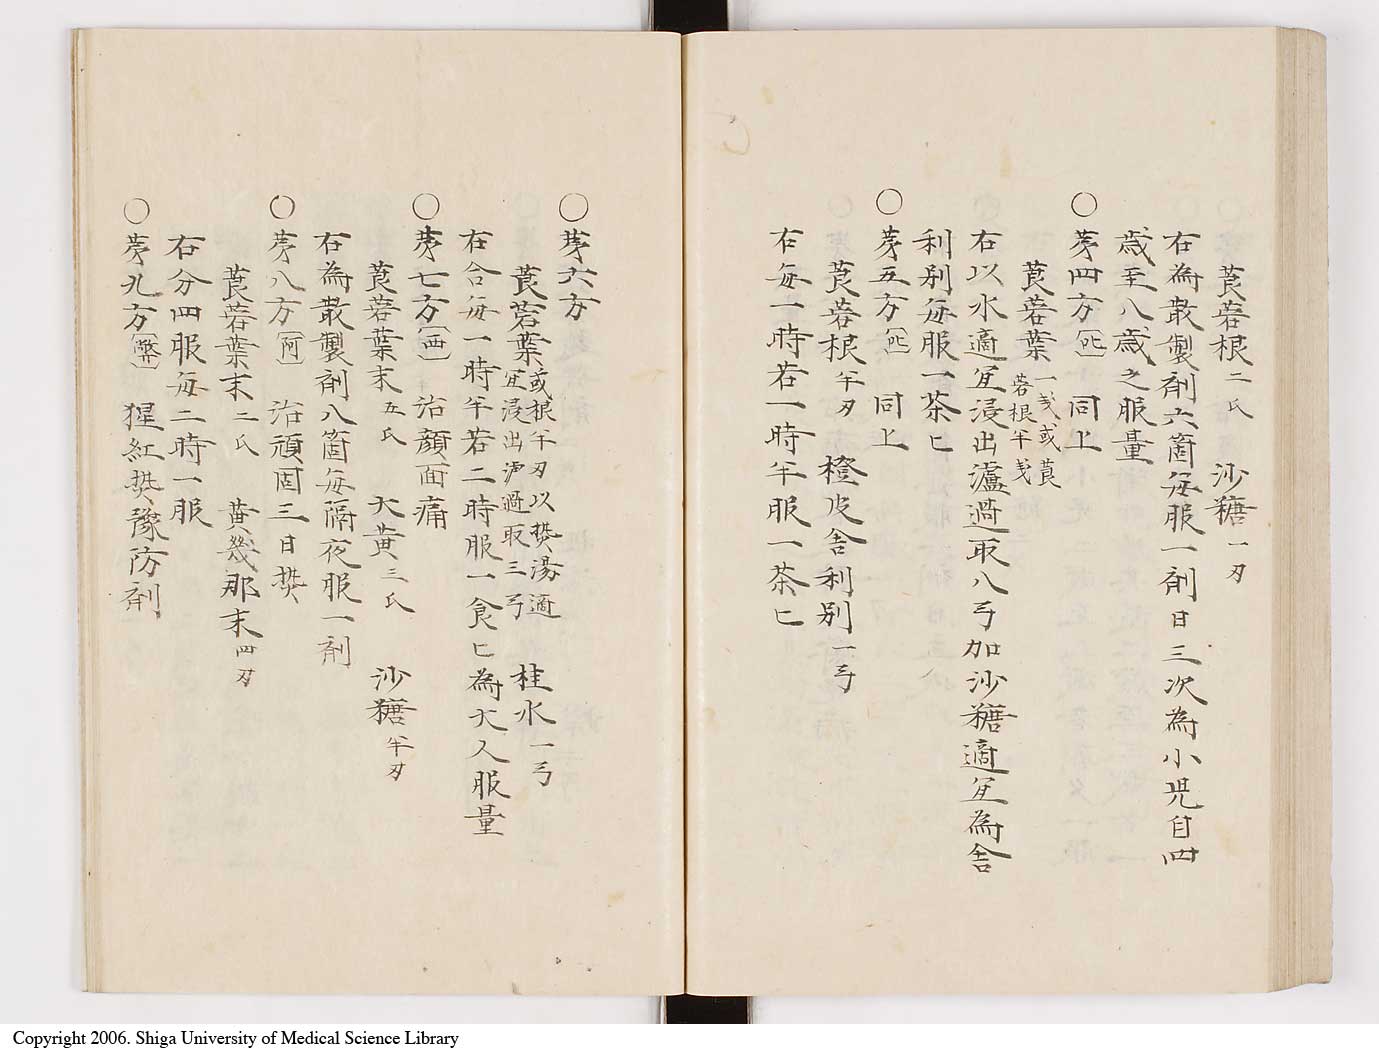 莨菪根二氏 沙糖一刃
右為散製剤六箇毎服一剤日三次為小児自四
歳至八歳之服量
○芽四方〔比〕同上
莨菪葉一戔或莨
菪根半戔
右以水適宜浸出瀘過取八弓加沙糖適宜為舎
利別毎服一茶匕
○芽五方〔比〕同上
莨菪根半刃 橙皮舎利別一弓
右毎一時若一時半服一茶匕
○芽六方
莨菪葉或根半刃以㷛湯適
宜浸出濾過取三弓 桂水一弓
右合毎一時半若二時服一食匕為大人服量
○芽七方〔西〕治顔面痛
莨菪葉末五氏 大黄三氏 沙糖半刃
右為散製剤八箇毎隔夜服一剤
○芽八方〔阿〕治頑固三日㷛
莨菪葉末二氏 黄幾那末四刃
右分四服毎二時一服
○芽九方 猩紅㷛豫防剤
Copyright 2006. Shiga University of Medical Science Library